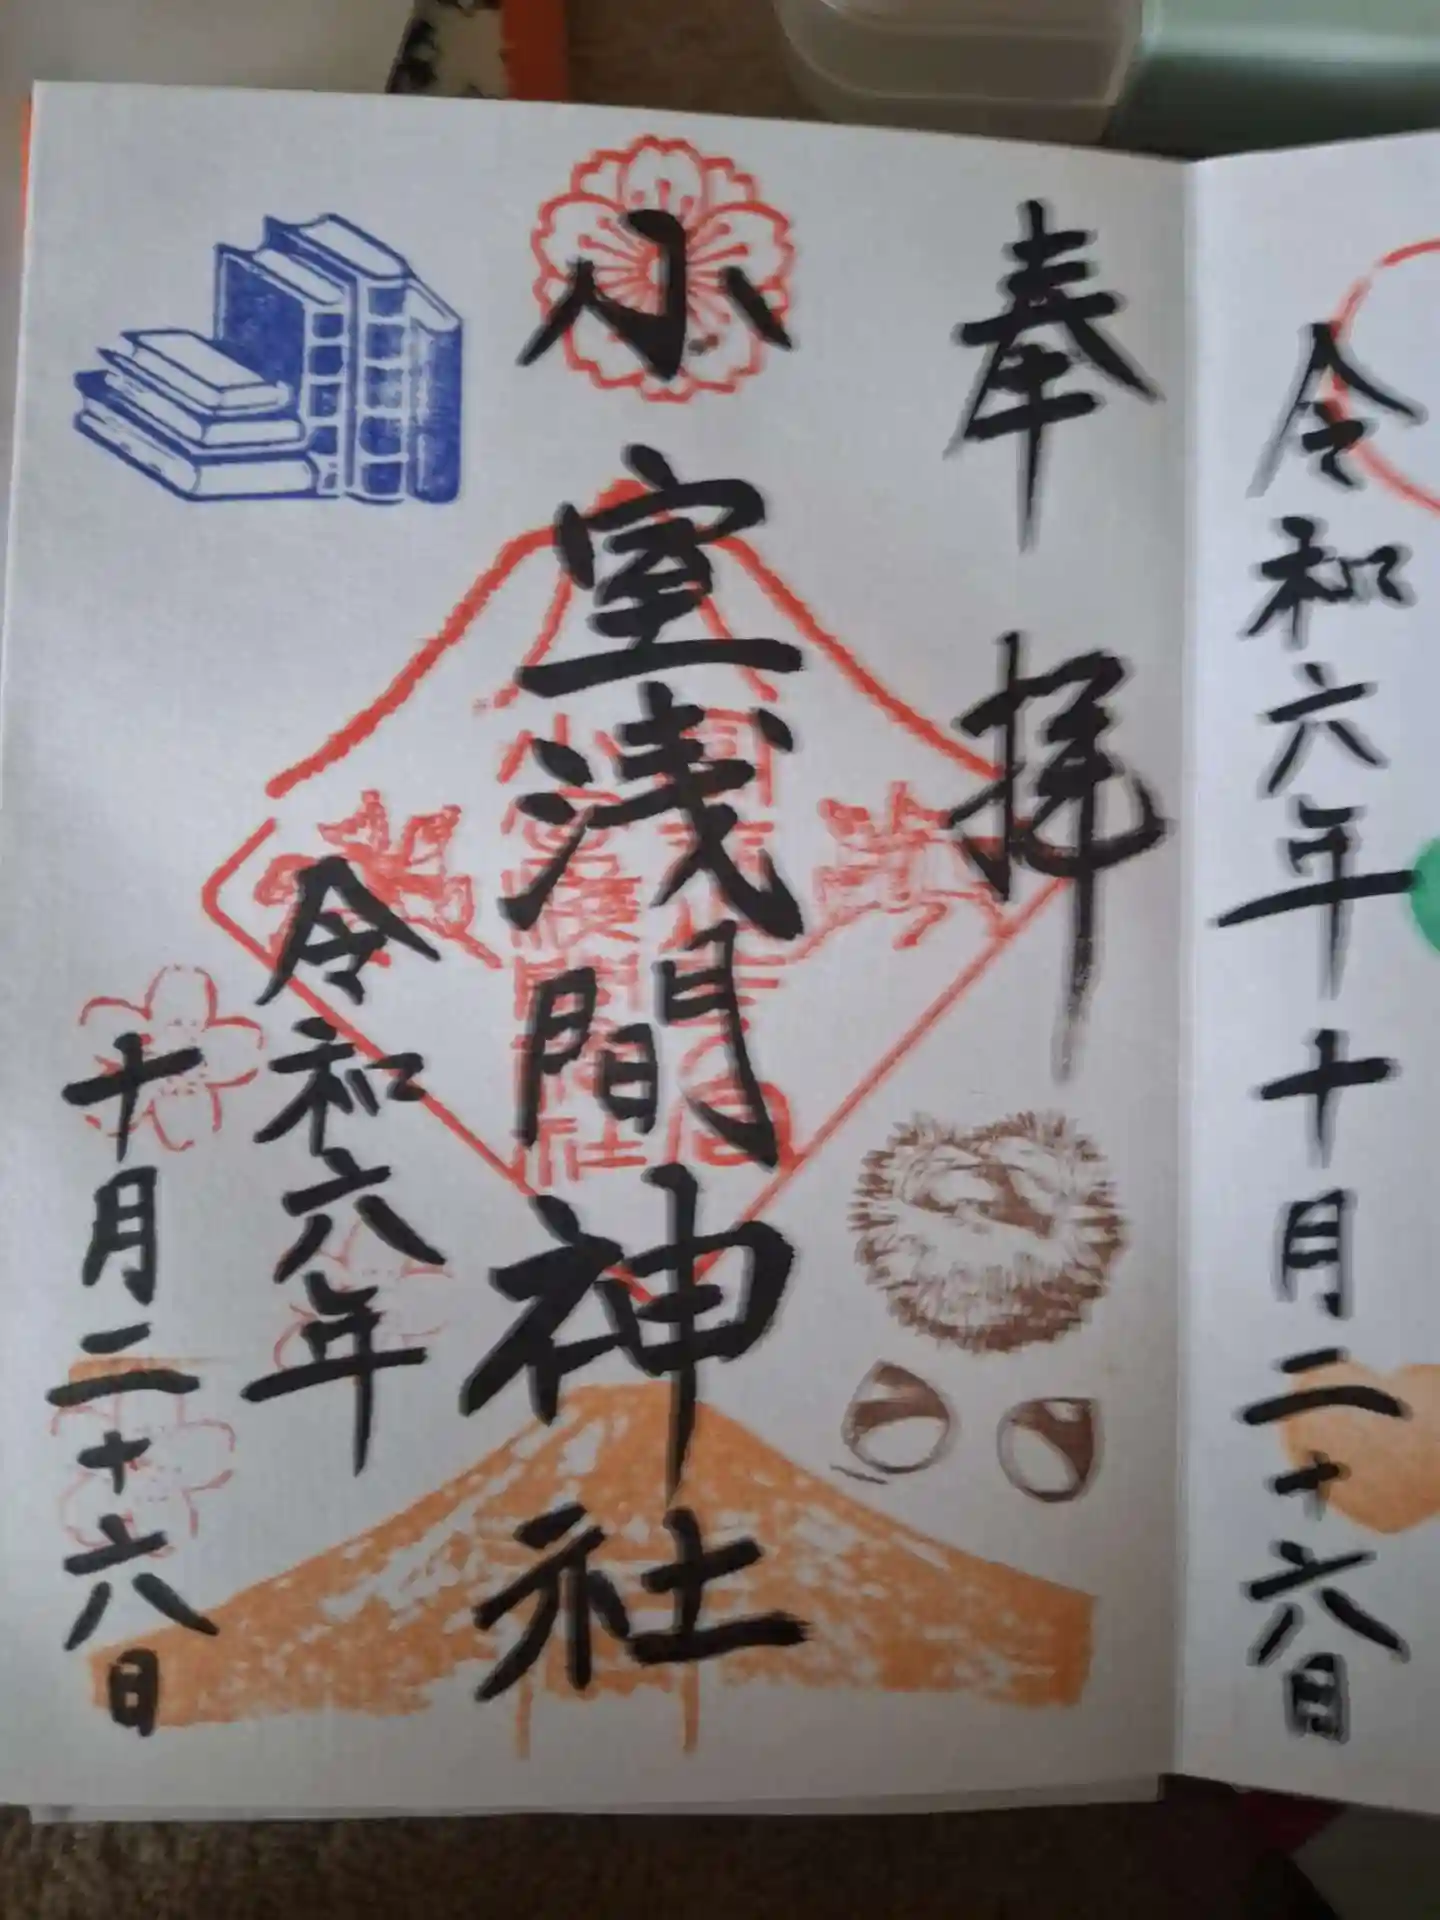 令和六年十月二十六日
奉拝
小室浅間神社
令和六年
十月二十六日